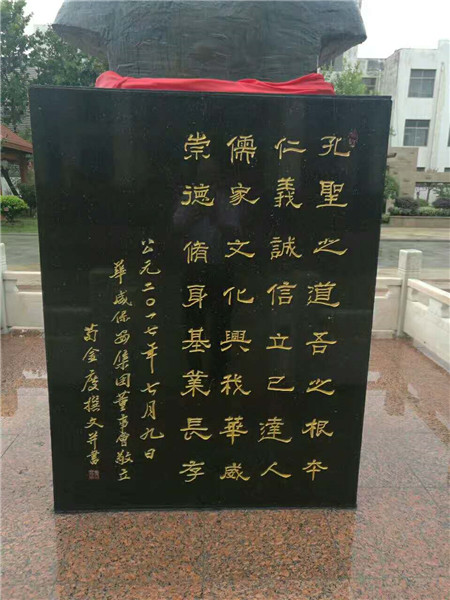 孔聖之道吾之根本
仁義誠信立己達人
儒家文化興我華威
崇德脩身基業長存
公元二〇一七年七月九日
華威保安集团董事會敬立
金慶撰文并書